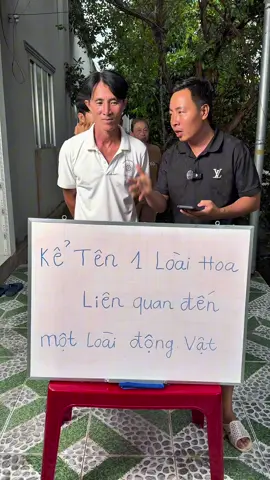 Kể Tên 1 Loài Hoa
Liên quan đến
một Loài động Vật